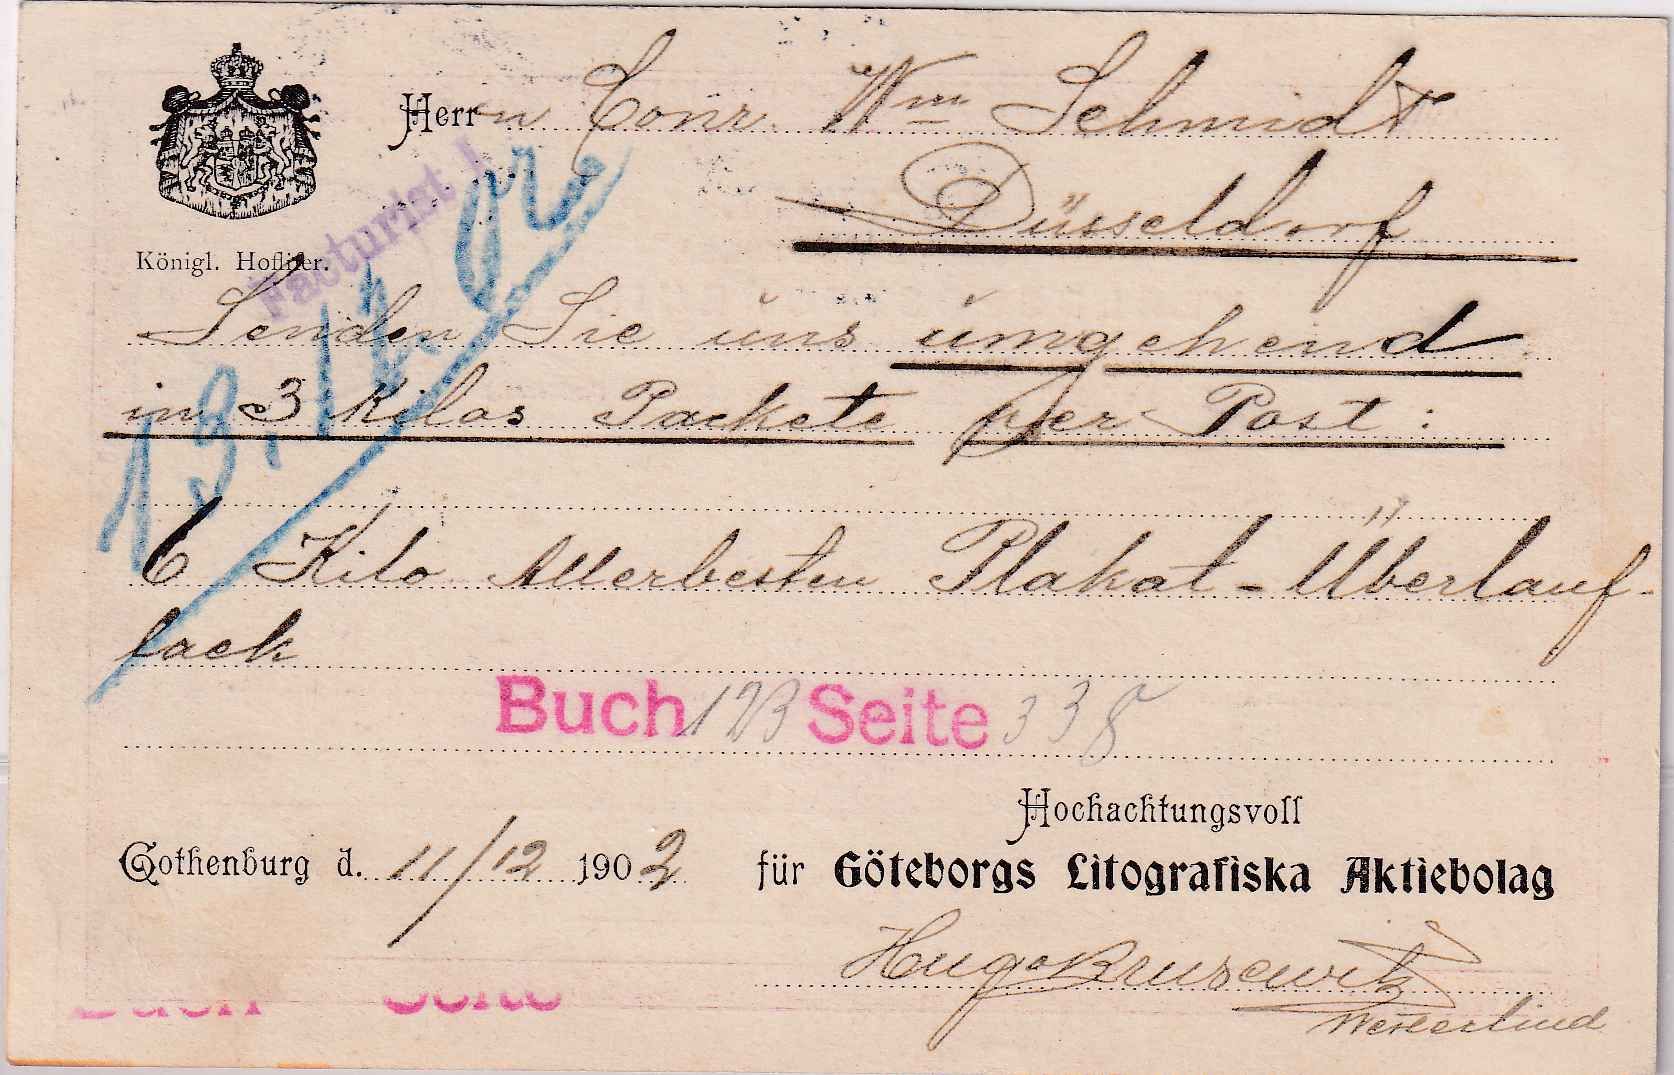 Herrn Conr. Wm Schmidt
Düsseldorf
Königl. Hoflifer.
Facturirt
13./12. 02
Senden Sie uns umgehend
in 3 Kilos Packete per Post:
6 Kilo Allerbesten Plakat-Überlauf-
lack
Buch 123 Seite 338
Hochachtungsvoll
Gothenburg d. 11/12 1902
für Göteborgs Litografiska Aktiebolag
Hugo Brusewitz
Westerlind
Buch Seite